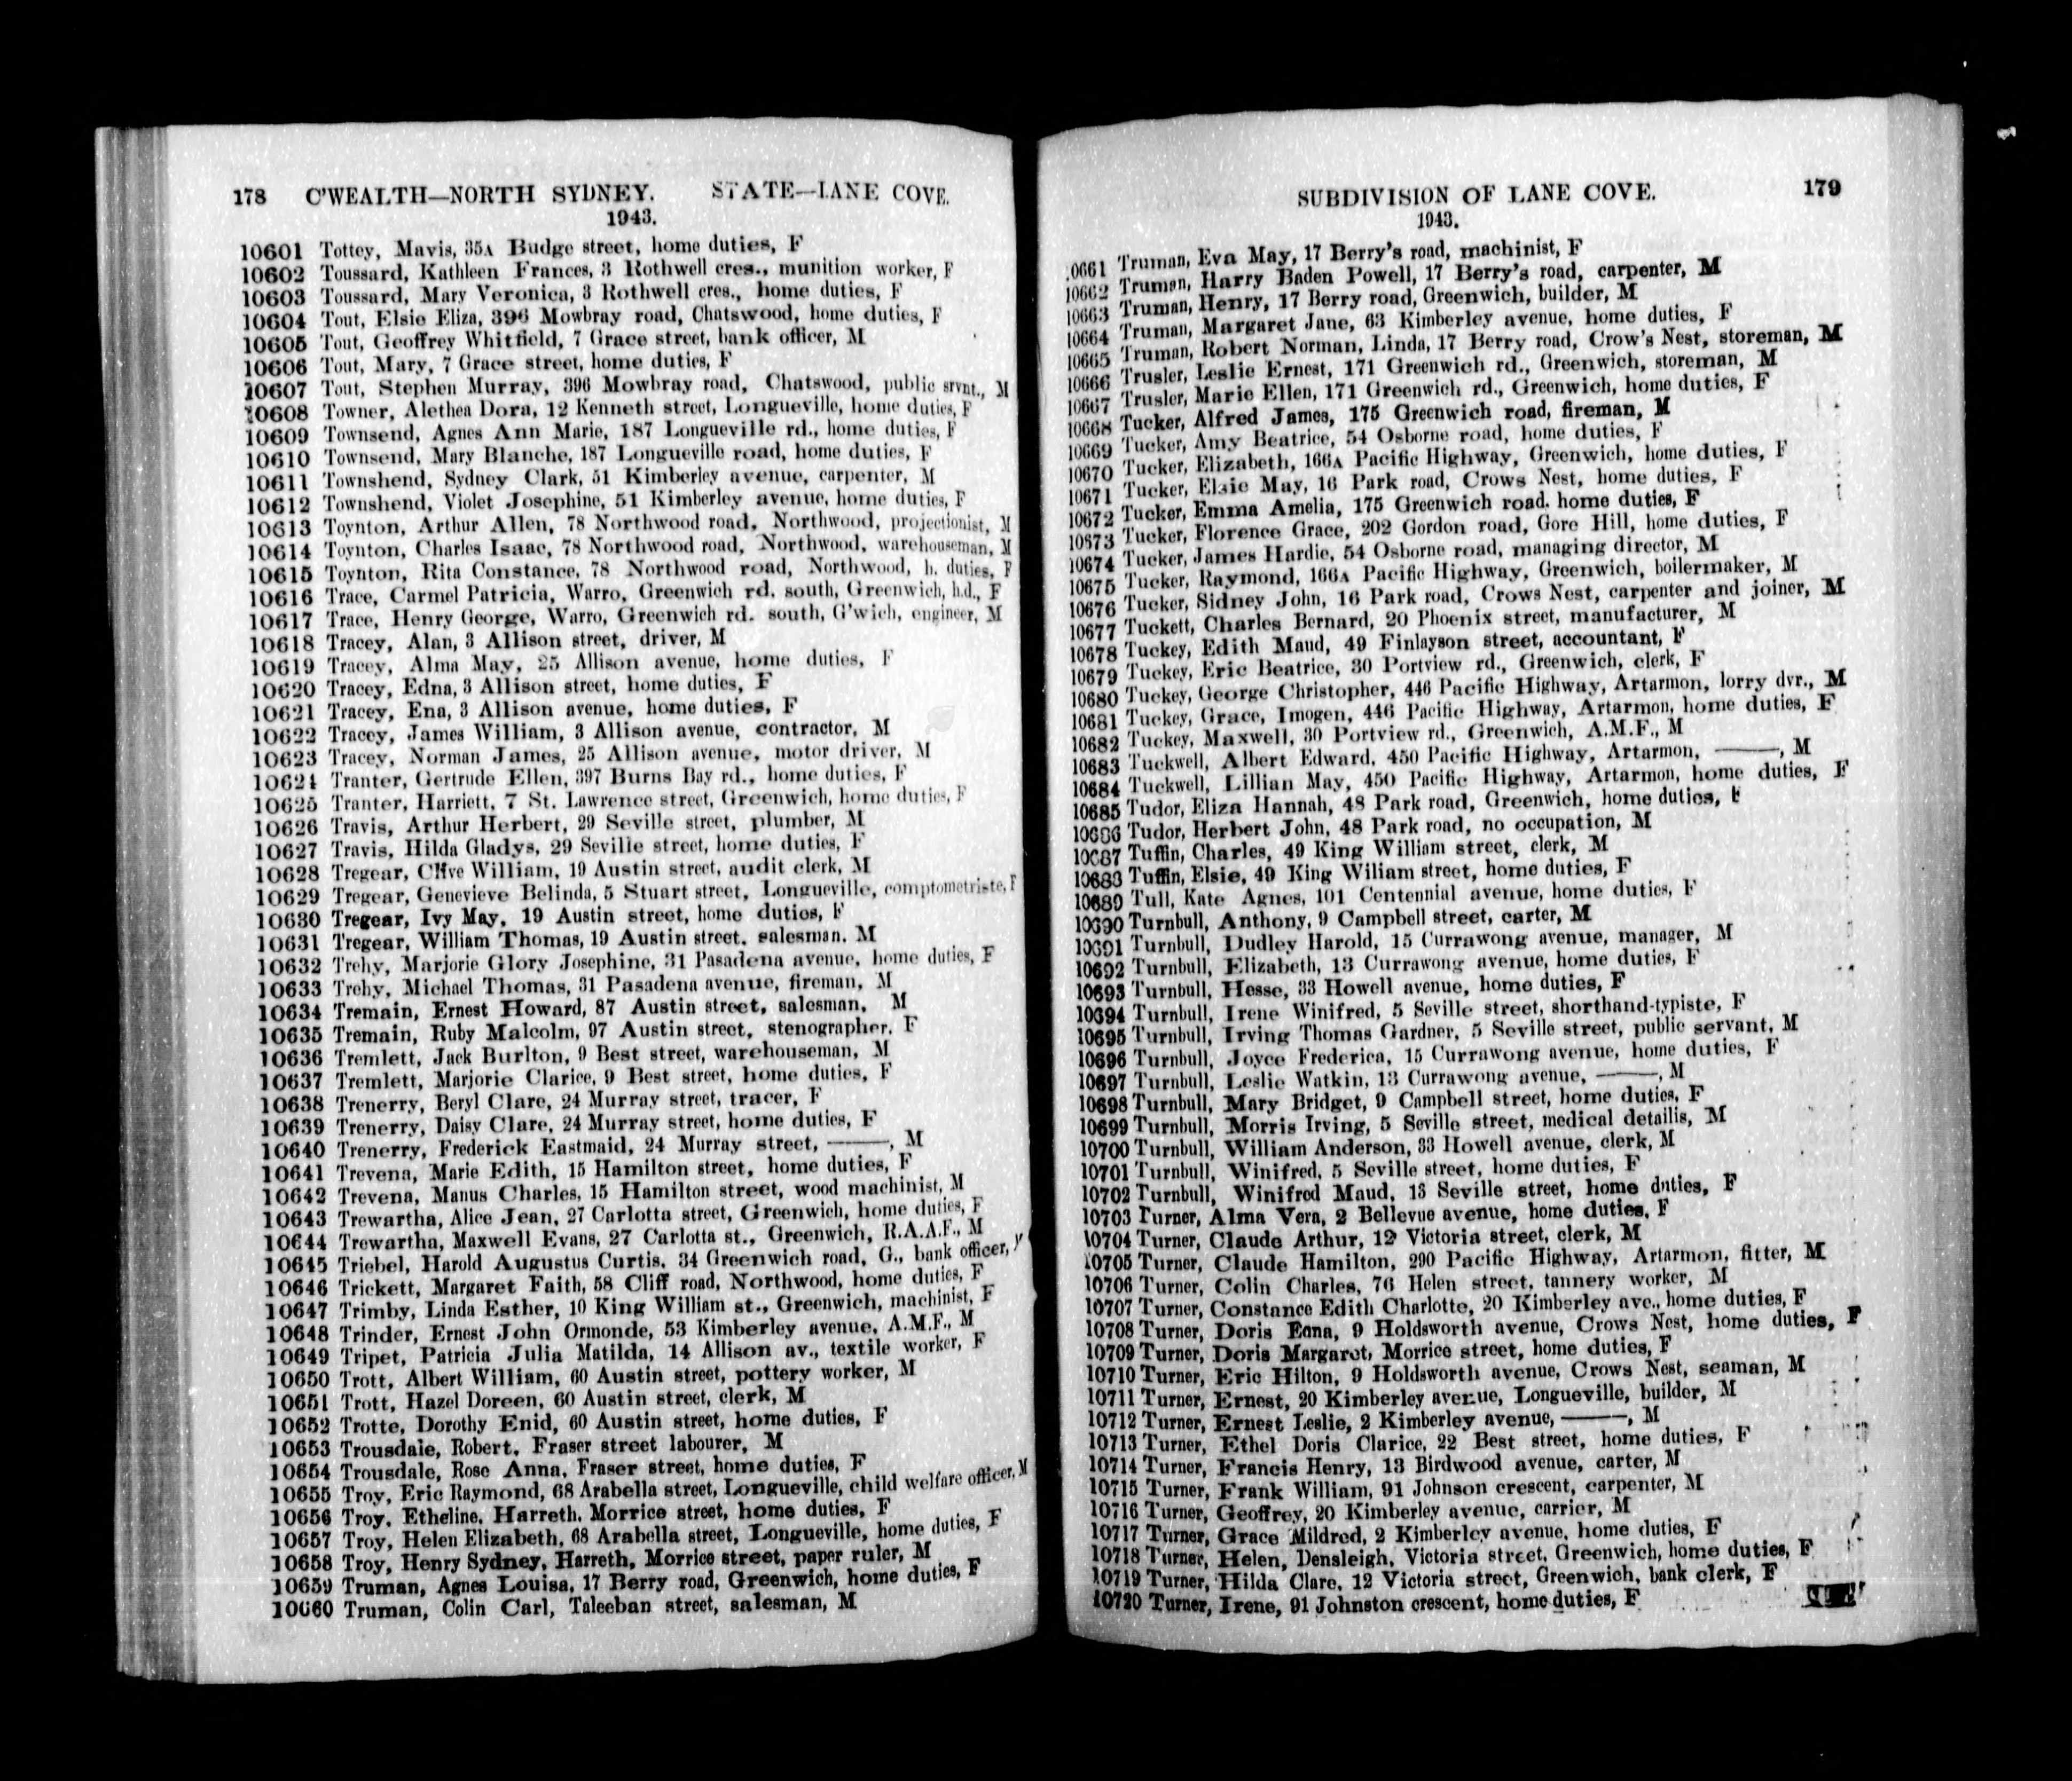 178 C'WEALTH—NORTH SYDNEY. STATE—LANE COVE.
1943.
10601 Tottey, Mavis, 35A Budge street, home duties, F
10602 Toussard, Kathleen Frances, 3 Rothwell cres., munition worker, F
10603 Toussard, Mary Veronica, 3 Rothwell cres., home duties, F
10604 Tout, Elsie Eliza, 396 Mowbray road, Chatswood, home duties, F
10605 Tout, Geoffrey Whitfield, 7 Grace street, bank officer, M
10606 Tout, Mary, 7 Grace street, home duties, F
10607 Tout, Stephen Murray, 396 Mowbray road, Chatswood, public srvnt., M
10608 Towner, Alethea Dora, 12 Kenneth street, Longueville, home duties, F
10609 Townsend, Agnes Ann Marie, 187 Longueville rd., home duties, F
10610 Townsend, Mary Blanche, 187 Longueville road, home duties, F
10611 Townshend, Sydney Clark, 51 Kimberley avenue, carpenter, M
10612 Townshend, Violet Josephine, 51 Kimberley avenue, home duties, F
10613 Toynton, Arthur Allen, 78 Northwood road, Northwood, projectionist, M
10614 Toynton, Charles Isaac, 78 Northwood road, Northwood, warehouseman, M
10615 Toynton, Rita Constance, 78 Northwood road, Northwood, h. duties, F
10616 Trace, Carmel Patricia, Warro, Greenwich rd. south, Greenwich, h.d., F
10617 Trace, Henry George, Warro, Greenwich rd. south, G'wich, engineer, M
10618 Tracey, Alan, 3 Allison street, driver, M
10619 Tracey, Alma May, 25 Allison avenue, home duties, F
10620 Tracey, Edna, 3 Allison street, home duties, F
10621 Tracey, Ena, 3 Allison avenue, home duties, F
10622 Tracey, James William, 3 Allison avenue, contractor, M
10623 Tracey, Norman James, 25 Allison avenue, motor driver, M
10624 Tranter, Gertrude Ellen, 397 Burns Bay rd., home duties, F
10625 Tranter, Harriett, 7 St. Lawrence street, Greenwich, home duties, F
10626 Travis, Arthur Herbert, 29 Seville street, plumber, M
10627 Travis, Hilda Gladys, 29 Seville street, home duties, F
10628 Tregear, Clive William, 19 Austin street, audit clerk, M
10629 Tregear, Genevieve Belinda, 5 Stuart street, Longueville, comptometriste, F
10630 Tregear, Ivy May, 19 Austin street, home duties, F
10631 Tregear, William Thomas, 19 Austin street, salesman, M
10632 Trehy, Marjorie Glory Josephine, 31 Pasadena avenue, home duties, F
10633 Trehy, Michael Thomas, 31 Pasadena avenue, fireman, M
10634 Tremain, Ernest Howard, 87 Austin street, salesman, M
10635 Tremain, Ruby Malcolm, 97 Austin street, stenographer, F
10636 Tremlett, Jack Burlton, 9 Best street, warehouseman, M
10637 Tremlett, Marjorie Clarice, 9 Best street, home duties, F
10638 Trenerry, Beryl Clare, 24 Murray street, tracer, F
10639 Trenerry, Daisy Clare, 24 Murray street, home duties, F
10640 Trenerry, Frederick Eastmaid, 24 Murray street, ———, M
10641 Trevena, Marie Edith, 15 Hamilton street, home duties, F
10642 Trevena, Manus Charles, 15 Hamilton street, wood machinist, M
10643 Trewartha, Alice Jean, 27 Carlotta street, Greenwich, home duties, F
10644 Trewartha, Maxwell Evans, 27 Carlotta st., Greenwich, R.A.A.F., M
10645 Triebel, Harold Augustus Curtis, 34 Greenwich road, G., bank officer,
10646 Trickett, Margaret Faith, 58 Cliff road, Northwood, home duties, F
10647 Trimby, Linda Esther, 10 King William st., Greenwich, machinist, F
10648 Trinder, Ernest John Ormonde, 53 Kimberley avenue, A.M.F., M
10649 Tripet, Patricia Julia Matilda, 14 Allison av., textile worker, F
10650 Trott, Albert William, 60 Austin street, pottery worker, M
10651 Trott, Hazel Doreen, 60 Austin street, clerk, M
10652 Trotte, Dorothy Enid, 60 Austin street, home duties, F
10653 Trousdale, Robert, Fraser street labourer, M
10654 Trousdale, Rose Anna, Fraser street, home duties, F
10655 Troy, Eric Raymond, 68 Arabella street, Longueville, child welfare officer, M
10656 Troy, Etheline, Harreth, Morrice street, home duties, F
10657 Troy, Helen Elizabeth, 68 Arabella street, Longueville, home duties, F
10658 Troy, Henry Sydney, Harreth, Morrice street, paper ruler, M
10659 Truman, Agnes Louisa, 17 Berry road, Greenwich, home duties, F
10660 Truman, Colin Carl, Taleeban street, salesman, M
SUBDIVISION OF LANE COVE. 179
1943.
0661 Truman, Eva May, 17 Berry's road, machinist, F
10662 Truman, Harry Baden Powell, 17 Berry's road, carpenter, M
10663 Truman, Henry, 17 Berry road, Greenwich, builder, M
10664 Truman, Margaret Jane, 63 Kimberley avenue, home duties, F
10665 Truman, Robert Norman, Linda, 17 Berry road, Crow's Nest, storeman, M
10666 Trusler, Leslie Ernest, 171 Greenwich rd., Greenwich, storeman, M
10667 Trusler, Marie Ellen, 171 Greenwich rd., Greenwich, home duties, F
10668 Tucker, Alfred James, 175 Greenwich road, fireman, M
10669 Tucker, Amy Beatrice, 54 Osborne road, home duties, F
10670 Tucker, Elizabeth, 166A Pacific Highway, Greenwich, home duties, F
10671 Tucker, Elsie May, 16 Park road, Crows Nest, home duties, F
10672 Tucker, Emma Amelia, 175 Greenwich road. home duties, F
10673 Tucker, Florence Grace, 202 Gordon road, Gore Hill, home duties, F
10674 Tucker, James Hardie, 54 Osborne road, managing director, M
10675 Tucker, Raymond, 166A Pacific Highway, Greenwich, boilermaker, M
10676 Tucker, Sidney John, 16 Park road, Crows Nest, carpenter and joiner, M
10677 Tuckett, Charles Bernard, 20 Phoenix street, manufacturer, M
10678 Tuckey, Edith Maud, 49 Finlayson street, accountant, F
10679 Tuckey, Eric Beatrice, 30 Portview rd., Greenwich, clerk, F
10680 Tuckey, George Christopher, 446 Pacific Highway, Artarmon, lorry dvr., M
10681 Tuckey, Grace, Imogen, 446 Pacific Highway, Artarmon, home duties, F
10682 Tuckey, Maxwell, 30 Portview rd., Greenwich, A.M.F., M
10683 Tuckwell, Albert Edward, 450 Pacific Highway, Artarmon, ———, M
10684 Tuckwell, Lillian May, 450 Pacific Highway, Artarmon, home duties, F
10685 Tudor, Eliza Hannah, 48 Park road, Greenwich, home duties, F
10686 Tudor, Herbert John, 48 Park road, no occupation, M
10687 Tuffin, Charles, 49 King William street, clerk, M
10688 Tuffin, Elsie, 49 King Wiliam street, home duties, F
10689 Tull, Kate Agnes, 101 Centennial avenue, home duties, F
10690 Turnbull, Anthony, 9 Campbell street, carter, M
10691 Turnbull, Dudley Harold, 15 Currawong avenue, manager, M
10692 Turnbull, Elizabeth, 13 Currawong avenue, home duties, F
10693 Turnbull, Hesse, 33 Howell avenue, home duties, F
10694 Turnbull, Irene Winifred, 5 Seville street, shorthand-typiste, F
10695 Turnbull, Irving Thomas Gardner, 5 Seville street, public servant, M
10696 Turnbull, Joyce Frederica, 15 Currawong avenue, home duties, F
10697 Turnbull, Leslie Watkin, 13 Currawong avenue, ———, M
10698 Turnbull, Mary Bridget, 9 Campbell street, home duties, F
10699 Turnbull, Morris Irving, 5 Seville street, medical detailis, M
10700 Turnbull, William Anderson, 33 Howell avenue, clerk, M
10701 Turnbull, Winifred, 5 Seville street, home duties, F
10702 Turnbull, Winifred Maud, 13 Seville street, home duties, F
10703 Turner, Alma Vera, 2 Bellevue avenue, home duties, F
10704 Turner, Claude Arthur, 12 Victoria street, clerk, M
10705 Turner, Claude Hamilton, 290 Pacific Highway, Artarmon, fitter, M
10706 Turner, Colin Charles, 76 Helen street, tannery worker, M
10707 Turner, Constance Edith Charlotte, 20 Kimberley ave., home duties, F
10708 Turner, Doris Edna, 9 Holdsworth avenue, Crows Nest, home duties, F
10709 Turner, Doris Margaret, Morrice street, home duties, F
10710 Turner, Eric Hilton, 9 Holdsworth avenue, Crows Nest, seaman, M
10711 Turner, Ernest, 20 Kimberley avenue, Longueville, builder, M
10712 Turner, Ernest Leslie, 2 Kimberley avenue, ———, M
10713 Turner, Ethel Doris Clarice, 22 Best street, home duties, F
10714 Turner, Francis Henry, 13 Birdwood avenue, carter, M
10715 Turner, Frank William, 91 Johnson crescent, carpenter, M
10716 Turner, Geoffrey, 20 Kimberley avenue, carrier, M
10717 Turner, Grace Mildred, 2 Kimberley avenue, home duties, F
10718 Turner, Helen, Densleigh, Victoria street, Greenwich, home duties, F
10719 Turner, Hilda Clare, 12 Victoria street, Greenwich, bank clerk, F
10720 Turner, Irene, 91 Johnston crescent, home duties, F